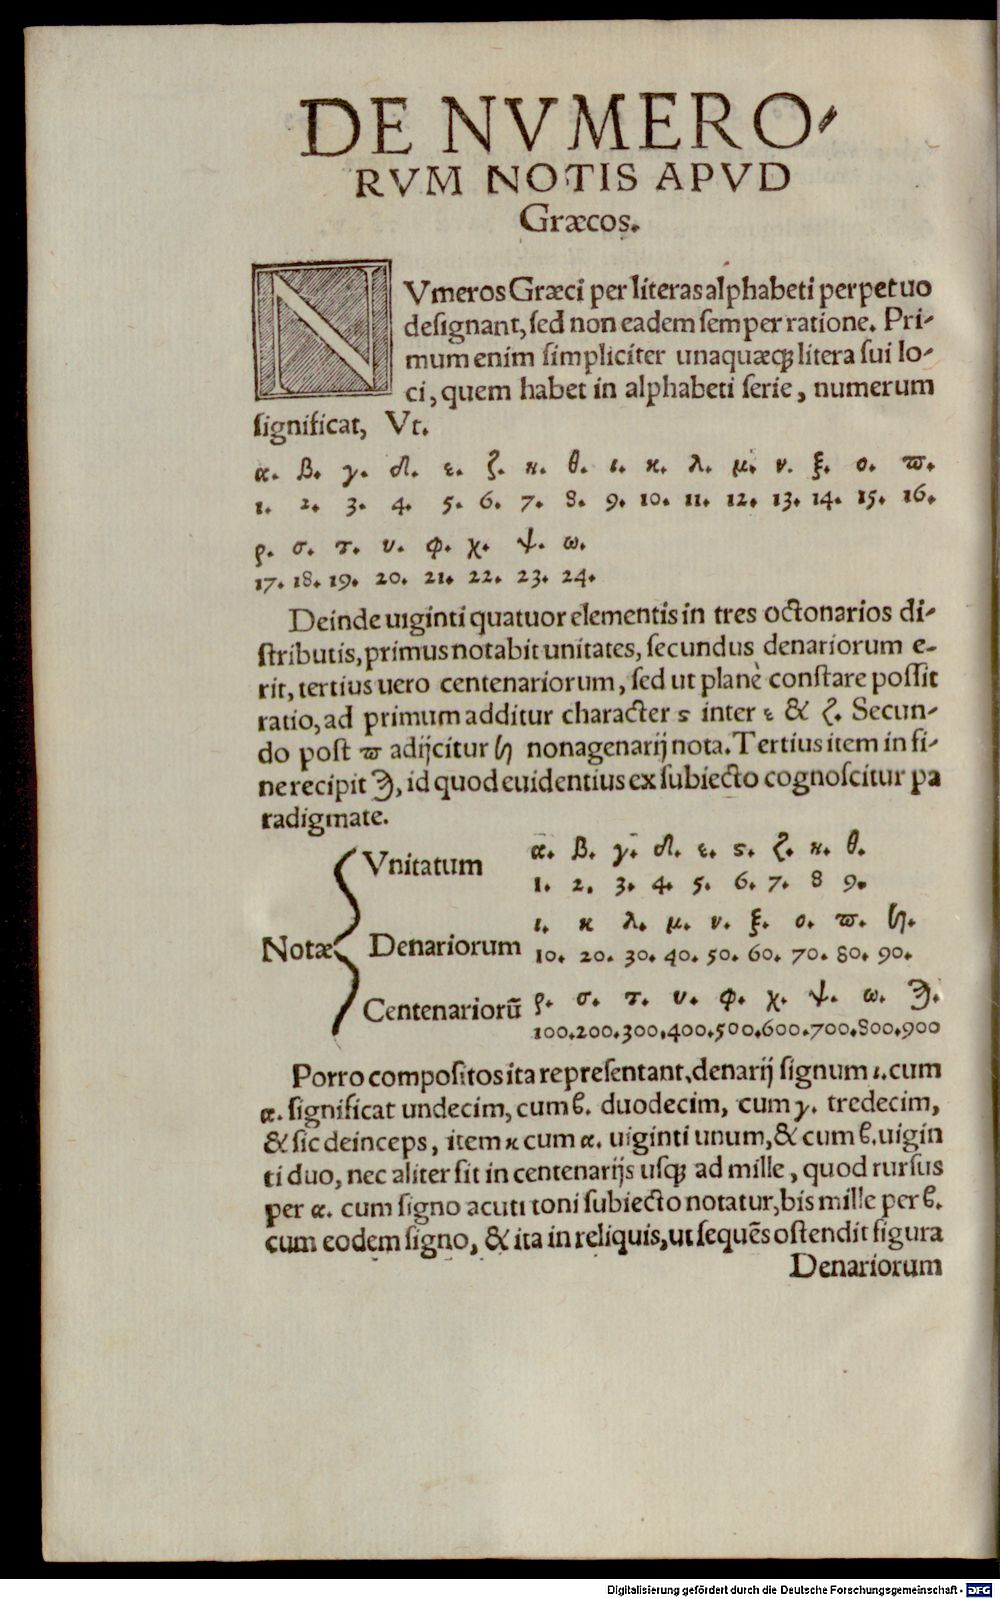 DE NVMERO-
RVM NOTIS APVD
Græcos.
NVmeros Græci per literas alphabeti perpetuo
designant, sed non eadem semper ratione. Pri-
mum enim simpliciter unaquæq; litera sui lo-
ci, quem habet in alphabeti serie, numerum
significat, Vt.
α. β. γ. δ. ε. ζ. η. θ. ι. κ. λ. μ. ν. ξ. ο. ϖ.
1. 2. 3. 4. 5. 6. 7. 8. 9. 10. 11. 12. 13. 14. 15. 16.
ρ. σ. τ. υ. φ. χ. ψ. ω.
17. 18. 19. 20. 21. 22. 23. 24.
Deinde uiginti quatuor elementis in tres octonarios di-
stributis, primus notabit unitates, secundus denariorum e-
rit, tertius uero centenariorum, sed ut planè constare possit
ratio, ad primum additur character ϛ inter ε & ζ. Secun-
do post ϖ adijcitur ϟ nonagenarij nota. Tertius item in fi-
ne recipit ϡ, id quod euidentius ex subiecto cognoscitur pa
radigmate.
Notæ
Vnitatum
α. β. γ. δ. ε. ϛ. ζ. η. θ.
1. 2. 3. 4. 5. 6. 7. 8 9.
Denariorum
ι. κ λ. μ. ν. ξ. ο. ϖ. ϟ.
10. 20. 30. 40. 50. 60. 70. 80. 90.
Centenariorũ
ρ. σ. τ. υ. φ. χ. ψ. ω. ϡ.
100. 200. 300. 400. 500. 600. 700. 800. 900
Porro compositos ita repræsentant, denarij signum ι. cum
α. significat undecim, cum ϐ. duodecim, cum γ. tredecim,
& sic deinceps, item κ cum α. uiginti unum, & cum ϐ. uigin
ti duo, nec aliter fit in centenarijs usq; ad mille, quod rursus
per α. cum signo acuti toni subiecto notatur, bis mille per ϐ.
cum eodem signo, & ita in reliquis, ut sequẽs ostendit figura
Denariorum
Digitalisierung gefördert durch die Deutsche Forschungsgemeinschaft - DFG